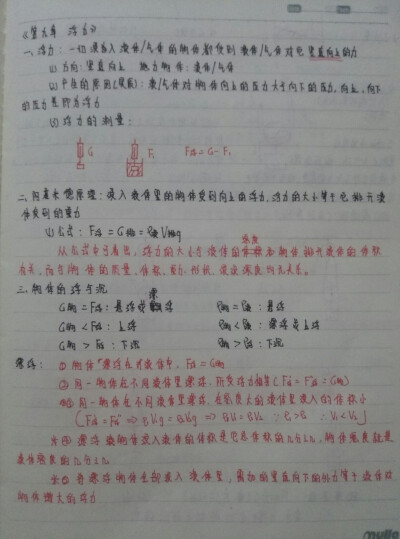 《第九章 浮力》
一、浮力：一切浸入液体/气体的物体都受到液体/气体对它竖直向上的力
(1) 方向：竖直向上 施力物体：液体/气体
(2) 产生的原因(实质)：液/气体对物体向上的压力大于向下的压力，向上、向下
的压力差即为浮力
(3) 浮力的测量：
G F₁ F浮=G-F₁
二、阿基米德原理：浸入液体里的物体受到向上的浮力，浮力的大小等于它排开液
体受到的重力
(1) 公式：F浮=G排=ρ液V排g
从公式中可看出，浮力的大小与液体的密度和物体排开液体的体积
有关，而与物体的质量、体积、重力、形状、浸没深度均无关。
三、物体的浮与沉
G物=F浮：悬浮或漂浮 ρ物=ρ液：悬浮
G物<F浮：上浮 ρ物<ρ液：漂浮或上浮
G物>F浮：下沉 ρ物>ρ液：下沉
漂浮：① 物体漂浮在液体中，F浮=G物
② 同一物体在不同液体里漂浮，所受浮力相等(F浮=F'浮=G物)
③ 同一物体在不同液体里漂浮，在密度大的液体里浸入的体积小
④ 漂浮物体浸入液体的体积是它总体积的几分之几，物体密度就是
液体密度的几分之几
⑤ 将漂浮物体全部浸入液体里，需加的竖直向下的外力等于液体对
物体增大的浮力